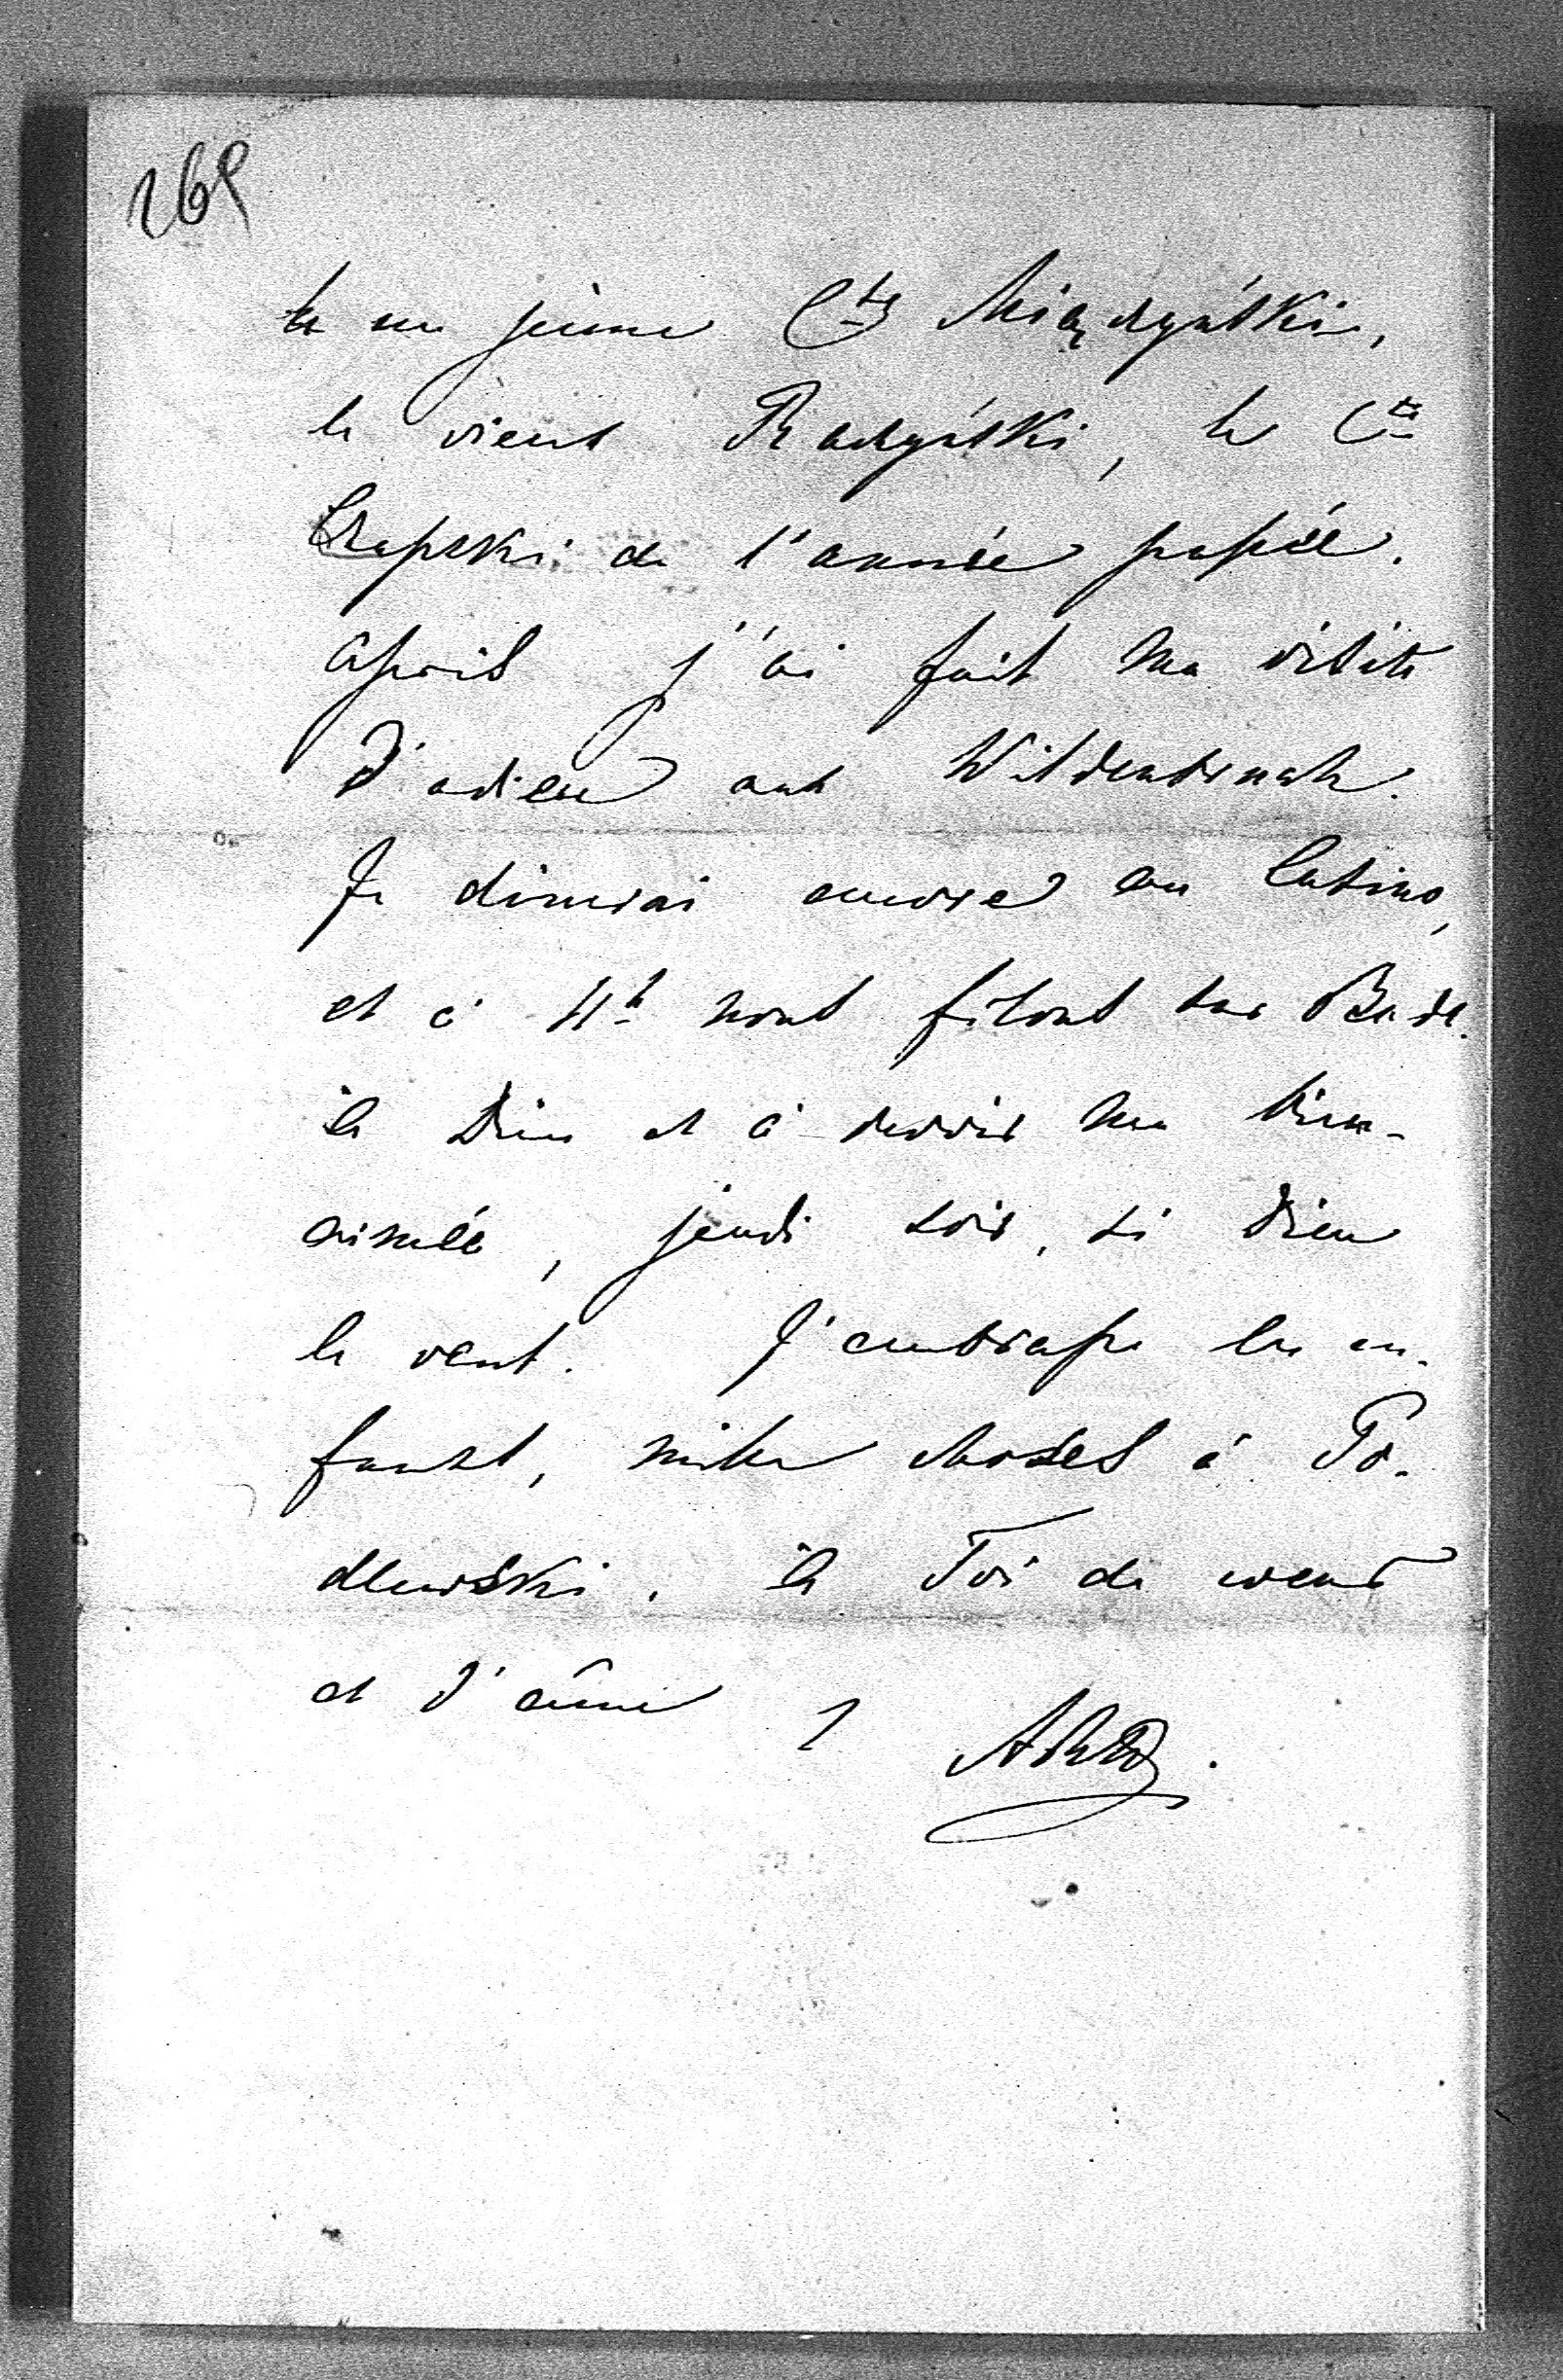 269
un jeune Cte Miączyński,
le vieux Raczyński, le Cte
Czapski de l'année passée.
Après j'ai fait ma visite
d'adieu aux Wildenbruch.
Je dinerai encore au Casino,
et à 4h nous filons sur Bade.
à Dieu et à revoir ma bien-
aimée, jeudi soir, si Dieu
le veut. J'embrasse les en-
fants, mille choses à Po-
dlewski. à Toi de cœur
et d'âme